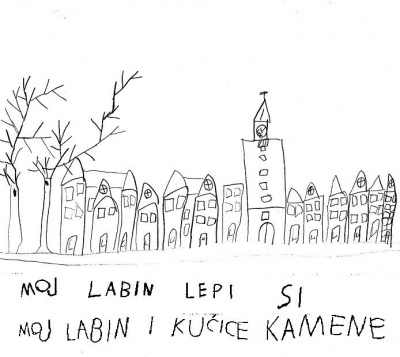 MOJ LABIN LEPI SI
MOJ LABIN I KUČICE KAMENE